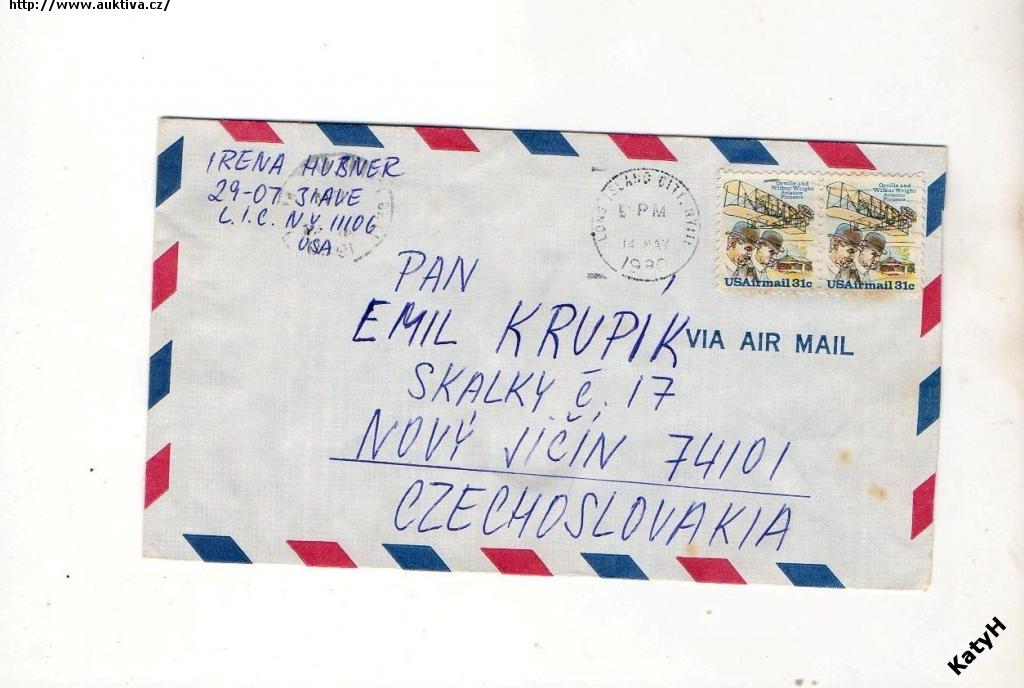 http://www.auktiva.cz/
IRENA HUBNER
29-07 31AVE
L.I.C. N.Y. 11106
USA
LONG ISLAND CITY, NY
PM
14 MAY
1980
Orville and
Wilbur Wright
Aviation
Pioneers
USAirmail 31c
Orville and
Wilbur Wright
Aviation
Pioneers
USAirmail 31c
VIA AIR MAIL
PAN
EMIL KRUPIK
SKALKY č. 17
NOVÝ JIČÍN 74101
CZECHOSLOVAKIA
KatyH